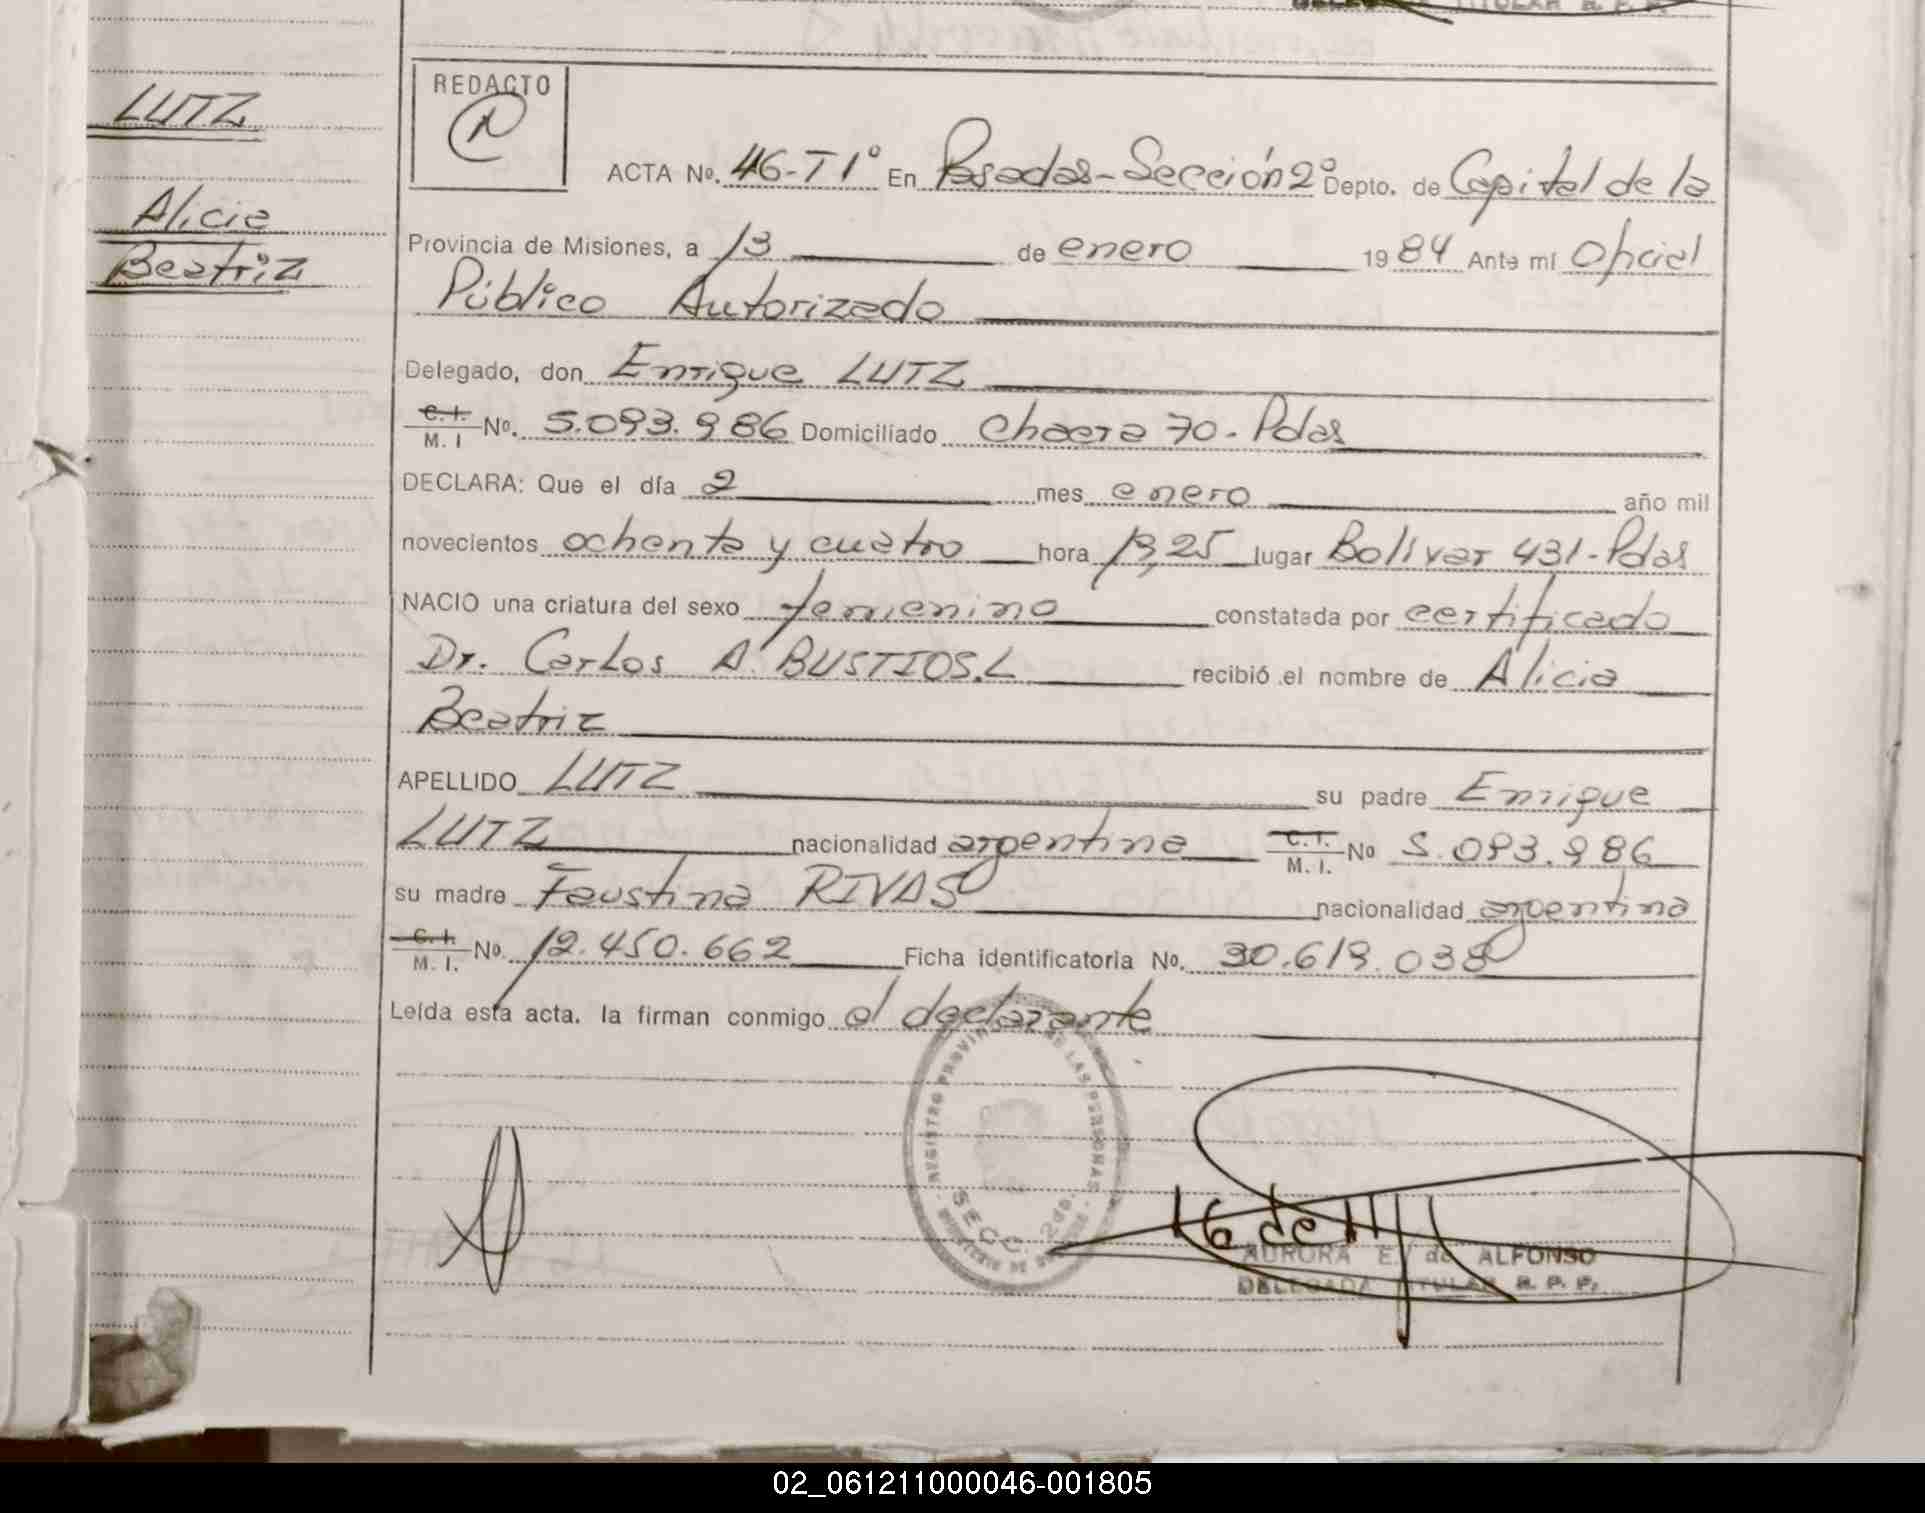 DELEGADA TITULAR R. P. P.
REDACTO
LUTZ
Alicia
Beatriz
ACTA Nº. 46-T1º En Posadas-Sección 2º Depto. de Capital de la
Provincia de Misiones, a 13 de enero 1984 Ante mí Oficial
Público Autorizado
Delegado, don Enrique LUTZ
C. I. M. I Nº. 5.093.986 Domiciliado Chacra 70-Pdas
DECLARA: Que el día 2 mes enero año mil
novecientos ochenta y cuatro hora 13,25 lugar Bolívar 431-Pdas
NACIO una criatura del sexo femenino constatada por certificado
Dr. Carlos A. BUSTIOS.L recibió el nombre de Alicia
Beatriz
APELLIDO LUTZ su padre Enrique
LUTZ nacionalidad argentina C. I. M. I. Nº 5.093.986
su madre Faustina RIVAS nacionalidad argentina
C. I. M. I. Nº. 12.450.662 Ficha identificatoria Nº. 30.619.038
Leída esta acta, la firman conmigo el declarante
REGISTRO PROVINCIAL DE LAS PERSONAS
SECC. 2da.
MINISTERIO DE
AURORA E. de ALFONSO
DELEGADA TITULAR R. P. P.
02_061211000046-001805